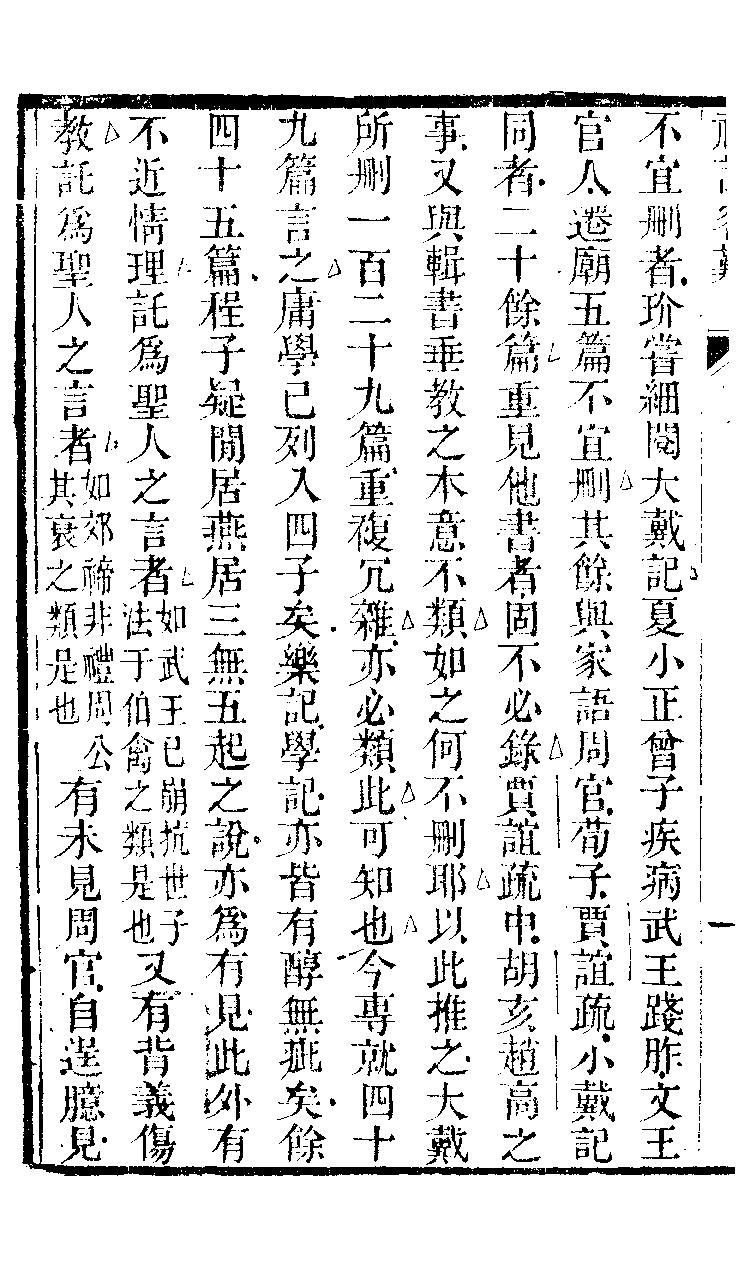 不宜刪者玠嘗細閱大戴記夏小正曾子疾病武王踐胙文王
官人遷廟五篇不宜刪其餘與家語周官荀子賈誼疏小戴記
同者二十餘篇重見他書者固不必錄賈誼疏中胡亥趙高之
事又與輯書垂教之木意不類如之何不刪耶以此推之大戴
所刪一百二十九篇重複冗雜亦必類此可知也今專就四十
九篇言之庸學已列入四子矣樂記學記亦皆有醇無疵矣餘
四十五篇程子疑閒居燕居三無五起之說亦爲有見此外有
不近情理託爲聖人之言者如武王已崩抗世子法于伯禽之類是也又有背義傷
教託爲聖人之言者如郊禘非禮周公其衰之類是也有未見周官自逞臆見